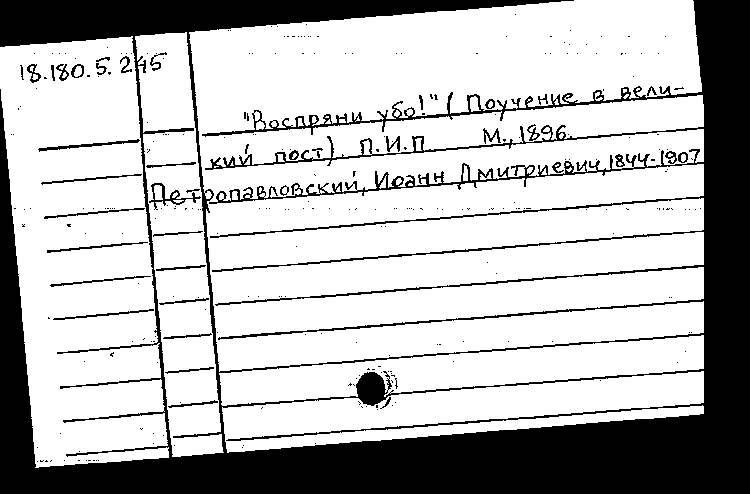 18.180.5.245
"Воспряни убо!" (Поучение в вели-
кий пост). П.И.П. М., 1896.
Петропавловский, Иоанн Дмитриевич, 1844-1907